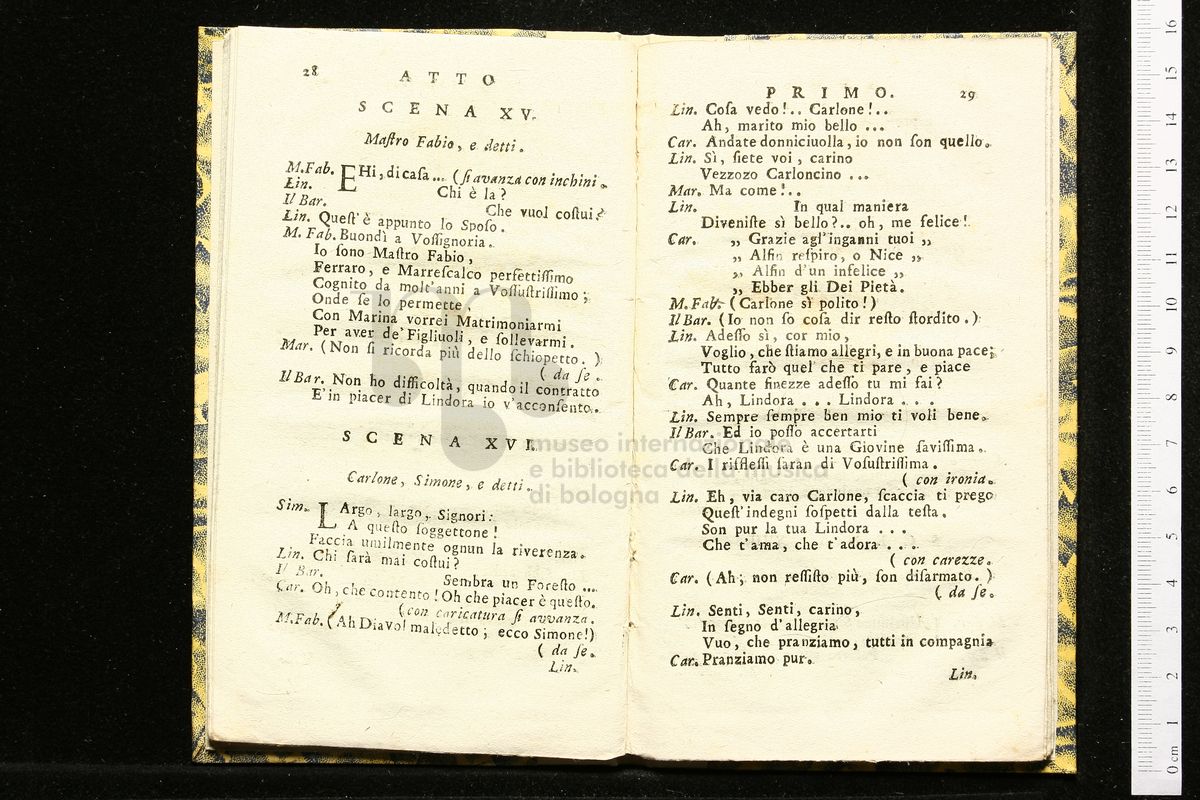 28
ATTO
SCENA XV.
Maſtro Fabio, e detti.
M.Fab. EHi, di caſa... (ſi avanza con inchini.
Lin. Chi è la?
Il Bar. Che vuol coſtui?
Lin. Queſt'è appunto lo Spoſo.
M. Fab. Buondì a Voſſignoria.
Io ſono Maſtro Fabio,
Ferraro, e Marreſcalco perfettiſſimo
Cognito da molt'anni a Voſſuſtriſſimo;
Onde ſe lo permette,
Con Marina vorrei Matrimoniarmi
Per aver de' Figliuoli, e ſollevarmi.
Mar. (Non ſi ricorda più dello ſchiopetto.)
( da ſe.
Il Bar. Non ho difficoltà, quando il contratto
E' in piacer di Lindora io v'acconſento.
SCENA XVI.
Carlone, Simone, e detti.
Sim. LArgo, largo, Signori:
A queſto ſoggettone!
Faccia umilmente ognun la riverenza.
Lin. Chi ſarà mai coſtui?
Il Bar. Sembra un Foreſto ...
Car. Oh, che contento! Oh che piacer è queſto.
(con caricatura ſi avvanza.
M.Fab. (Ah Diavol maledetto; ecco Simone!)
( da ſe.
Lin.
PRIMO.
29
Lin. Coſa vedo!.. Carlone!..
Ah, marito mio bello ...
Car. Andate donniciuolla, io non ſon quello.
Lin. Sì, ſiete voi, carino
Vezzozo Carloncino ...
Mar. Ma come!..
Lin. In qual maniera
Diveniſte sì bello?.. oh, me felice!
Car. „ Grazie agl'inganni tuoi „
„ Alfin reſpiro, o Nice „
„ Alfin d'un infelice „
„ Ebber gli Dei Pietà.
M.Fab. (Carlone sì polito!)
Il Bar. (Io non ſo coſa dir reſto ſtordito.)
Lin. Adeſſo sì, cor mio,
Voglio, che ſtiamo allegri, e in buona pace;
Tutto farò quel che ti pare, e piace
Car. Quante finezze adeſſo tu mi fai?
Ah, Lindora . . . Lindora . . .
Lin. Sempre ſempre ben mio ti voli bene.
Il Bar. Ed io poſſo accertarti
Che Lindora è una Giovine ſaviſſima.
Car. I rifleſſi ſaran di Voſuſtriſſima.
( con ironia.
Lin. Eh, via caro Carlone, ſcaccia ti prego
Queſt'indegni ſoſpetti dalla teſta.
Son pur la tua Lindora . . . .
Che t'ama, che t'adora . . . .
( con carezze.
Car. (Ah; non reſſiſto più, ſon diſarmato.)
( da ſe.
Lin. Senti, Senti, carino,
In ſegno d'allegria
Vuo, che pranziamo, tutti in compagnia
Car. Pranziamo pur.
Lin.
museo internazionale
e biblioteca della musica
di bologna
0 cm 1 2 3 4 5 6 7 8 9 10 11 12 13 14 15 16